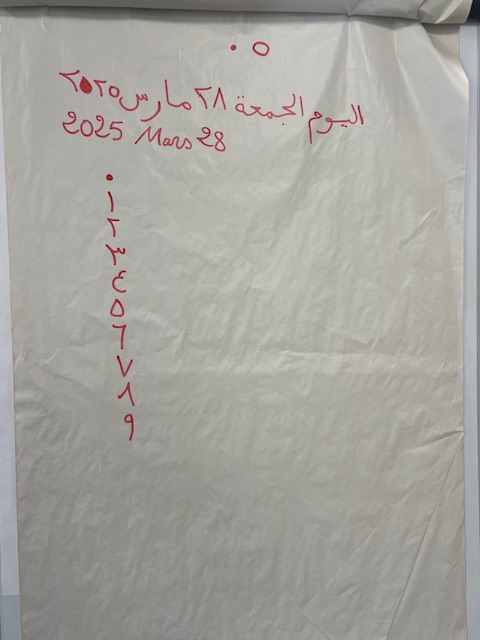 ٠ ٥
اليوم الجمعة ٢٨ مارس ٢٠٢٥
2025 Mars 28
٠
١
٢
٣
٤
٥
٦
٧
٨
٩